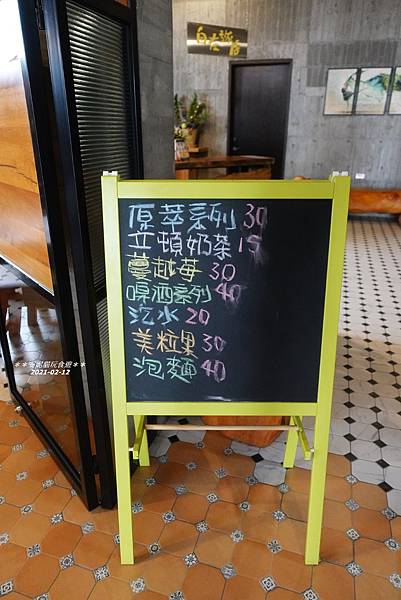 原萃系列 30
立頓奶茶 15
蔓越莓 30
啤酒系列 40
汽水 20
美粒果 30
泡麵 40
2021-02-12